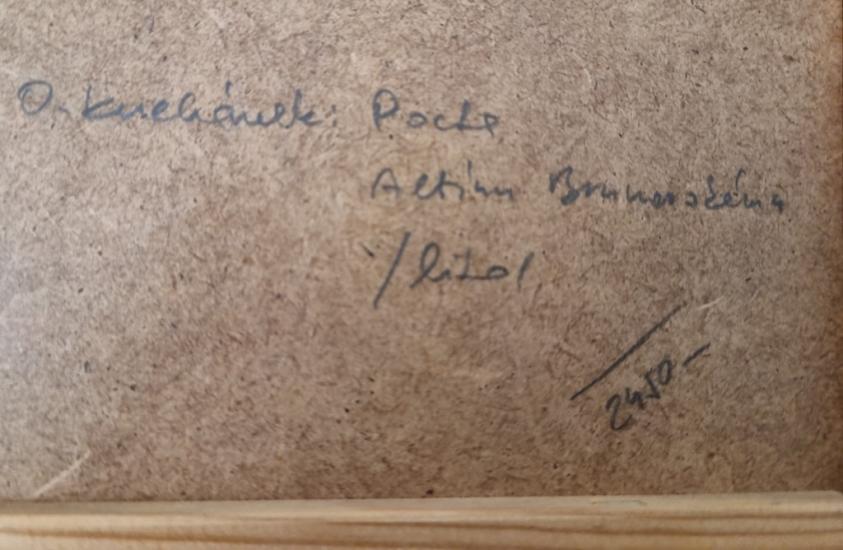 O. Kulhánek: Pocta
Albínu Brunovskému
/lito/
2450-